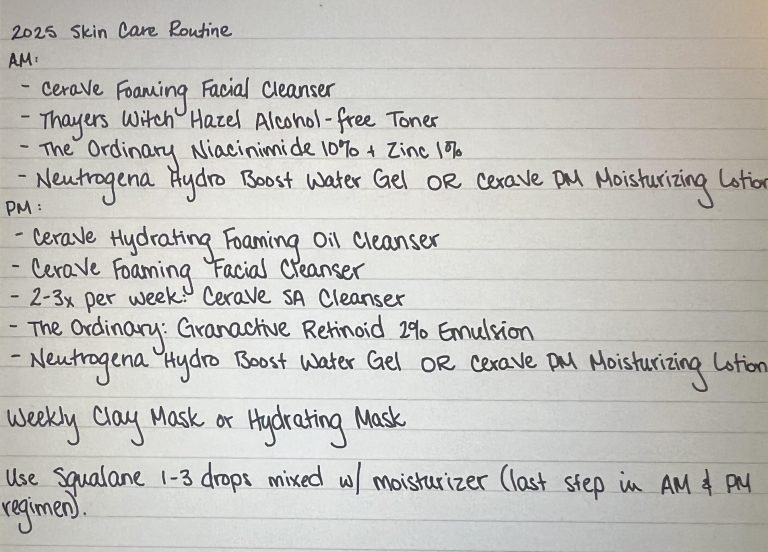 2025 Skin Care Routine
AM:
- CeraVe Foaming Facial Cleanser
- Thayers Witch Hazel Alcohol-free Toner
- The Ordinary Niacinimide 10% + Zinc 1%
- Neutrogena Hydro Boost Water Gel OR CeraVe PM Moisturizing Lotion
PM:
- CeraVe Hydrating Foaming Oil Cleanser
- CeraVe Foaming Facial Cleanser
- 2-3x per week: CeraVe SA Cleanser
- The Ordinary: Granactive Retinoid 2% Emulsion
- Neutrogena Hydro Boost Water Gel OR CeraVe PM Moisturizing Lotion
Weekly Clay Mask or Hydrating Mask
Use Squalane 1-3 drops mixed w/ moisturizer (last step in AM & PM
regimen).